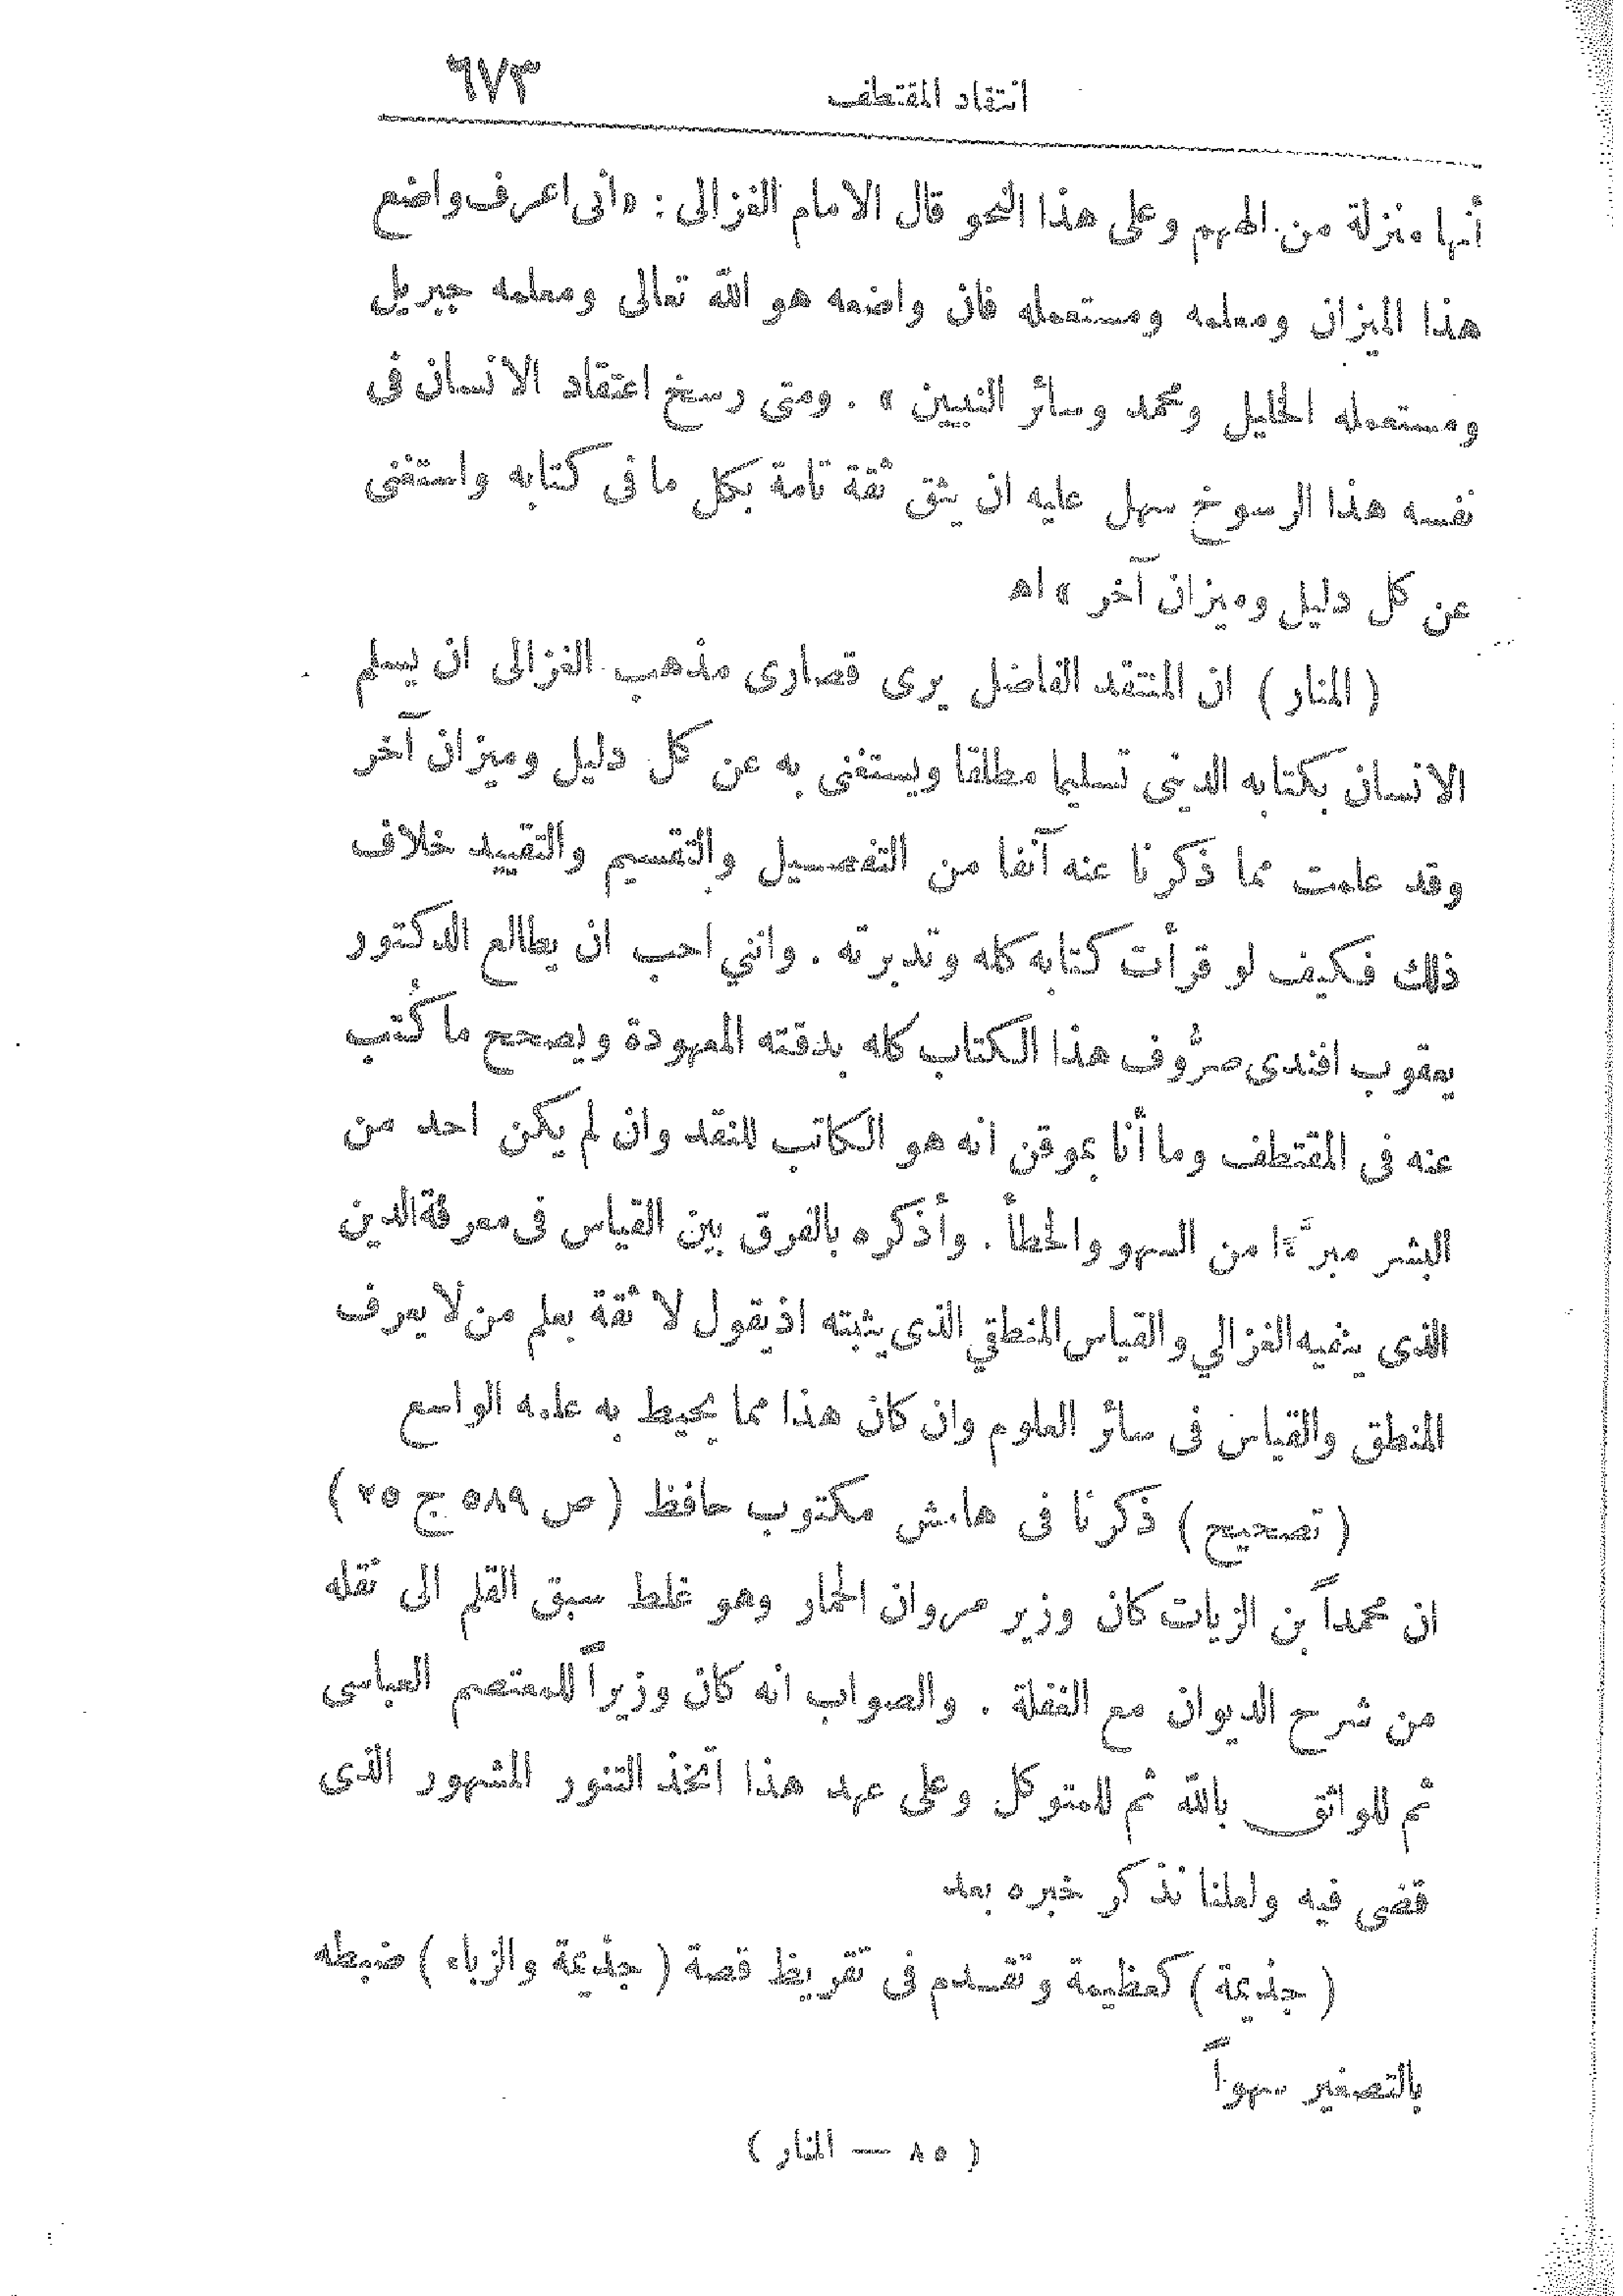 انتقاد المقتطف ٦٧٣
أنها منزلة من الههم وعلى هذا النحو قال الامام الغزالى : «انى اعرف واضع
هذا الميزان ومعلمه ومستعمله فان واضعه هو الله تعالى ومعلمه جبريل
ومستعمله الخليل ومحمد وسائر النبيين » . ومتى رسخ اعتقاد الانسان فى
نفسه هذا الرسوخ سهل عليه ان يثق ثقة تامة بكل ما فى كتابه واستغنى
عن كل دليل وميزان آخر » اه
( المنار ) ان المنتقد الفاضل يرى قصارى مذهب الغزالى ان يسلم
الانسان بكتابه الدينى تسليما مطلقا ويستغنى به عن كل دليل وميزان آخر
وقد علمت مما ذكرنا عنه آنفا من التفصيل والتقسيم والتقييد خلاف
ذلك فكيف لو قرأت كتابه كله وتدبرته . وانني احب ان يطالع الدكتور
يعقوب افندى صرُّوف هذا الكتاب كله بدقته المعهودة ويصحح ما كُتب
عنه فى المقتطف وما أنا بموقن انه هو الكاتب للنقد وان لم يكن احد من
البشر مبرَّءًا من السهو والخطأ . وأذكره بالفرق بين القياس فى معرفة الدين
الذى ينفيه الغزالي والقياس المنطقي الذى يثبته اذ يقول لا ثقة بعلم من لا يعرف
المنطق والقياس فى سائر العلوم وان كان هذا مما يحيط به علمه الواسع
( تصحيح ) ذكرنا فى هامش مكتوب حافظ ( ص ٥٨٩ ج ٢٥ )
ان محمداً بن الزيات كان وزير مروان الحمار وهو غلط سبق القلم الى نقله
من شرح الديوان مع الغفلة . والصواب انه كان وزيراً للمعتصم العباسى
ثم للواثق بالله ثم للمتوكل وعلى عهد هذا اتخذ التنور المشهور الذى
قضى فيه ولعلنا نذكر خبره بعد
( جذيمة ) كعظيمة وتقدم فى تقريظ قصة ( جذيمة والزباء ) ضبطه
بالتصغير سهواً
( ٨٥ — المنار )